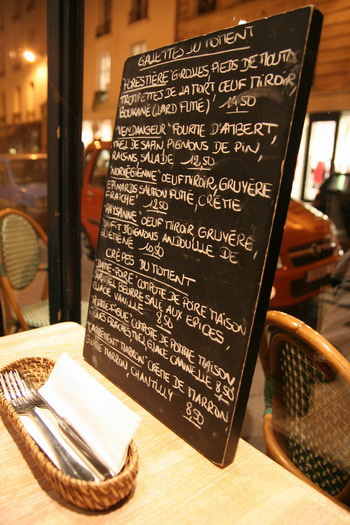 GALETTES DU MOMENT
"FORESTIÈRE" GIROLLES, PIEDS DE MOUTON
TROMPETTES DE LA MORT OEUF MIROIR,
BOUCANÉ (LARD FUMÉ) 14,50
"VENDANGEUR" FOURME D'AMBERT,
MIEL DE SAPIN, PIGNONS DE PIN,
RAISINS, SALADE 12,50
"NORVÉGIENNE" OEUF MIROIR, GRUYÈRE
EPINARDS SAUMON FUMÉ, CRÈME
FRAÎCHE 12,50
"PAYSANNE" OEUF MIROIR GRUYÈRE,
D'OIGNONS ANDOUILLE DE
GUÉMENÉ 10,50
CRÊPES DU MOMENT
POIRE COMPOTE DE POIRE MAISON
BEURRE SALÉ AUX EPICES,
VANILLE 8,50
COMPOTE DE POMME MAISON,
GLACE CANNELLE 8,50
MARRON" CRÈME DE MARRON
MARRON, CHANTILLY 8,50